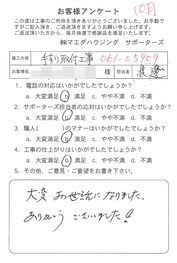 10月
お客様アンケート
この度は工事のご用命を頂きありがとうございました。お手数で
すがご記入頂き、ご返送頂きますようお願い申し上げます。
ご返送頂いた方から、毎月抽選で感謝品を差し上げます!
㈱マエダハウジング サポーターズ
工事内容 手すり取付工事 061-05909
お客様名 様 担当者 渡邊
1. 電話の対応はいかがでしたでしょうか?
a. 大変満足 b. 満足 c. やや不満 d. 不満
2. サポーターズ担当者の対応はいかがでしたでしょうか?
a. 大変満足 b. 満足 c. やや不満 d. 不満
3. 職人( )のマナーはいかがでしたでしょうか?
a. 大変満足 b. 満足 c. やや不満 d. 不満
4. 工事の仕上がりはいかがでしたでしょうか?
a. 大変満足 b. 満足 c. やや不満 d. 不満
5. その他、ご意見・ご要望をお書き下さい。
大変お世話になりました。
ありがとうございました!